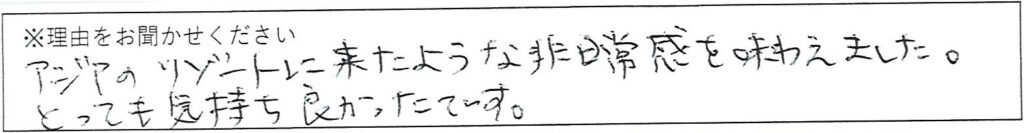 ※理由をお聞かせください
アジアのリゾートに来たような非日常感を味わえました。
とっても気持ち良かったです。